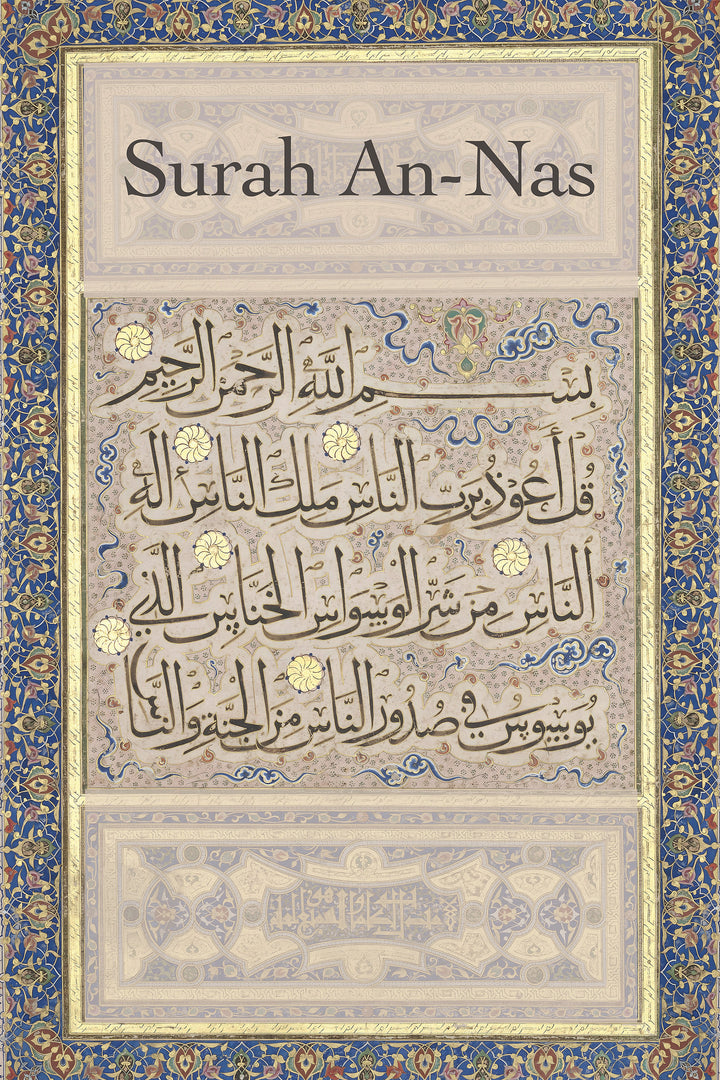 Surah An-Nas
بِسْمِ اللَّهِ الرَّحْمٰنِ الرَّحِيمِ
قُلْ أَعُوذُ بِرَبِّ النَّاسِ مَلِكِ النَّاسِ إِلٰهِ
النَّاسِ مِنْ شَرِّ الْوَسْوَاسِ الْخَنَّاسِ الَّذِي
يُوَسْوِسُ فِي صُدُورِ النَّاسِ مِنَ الْجِنَّةِ وَالنَّاسِ